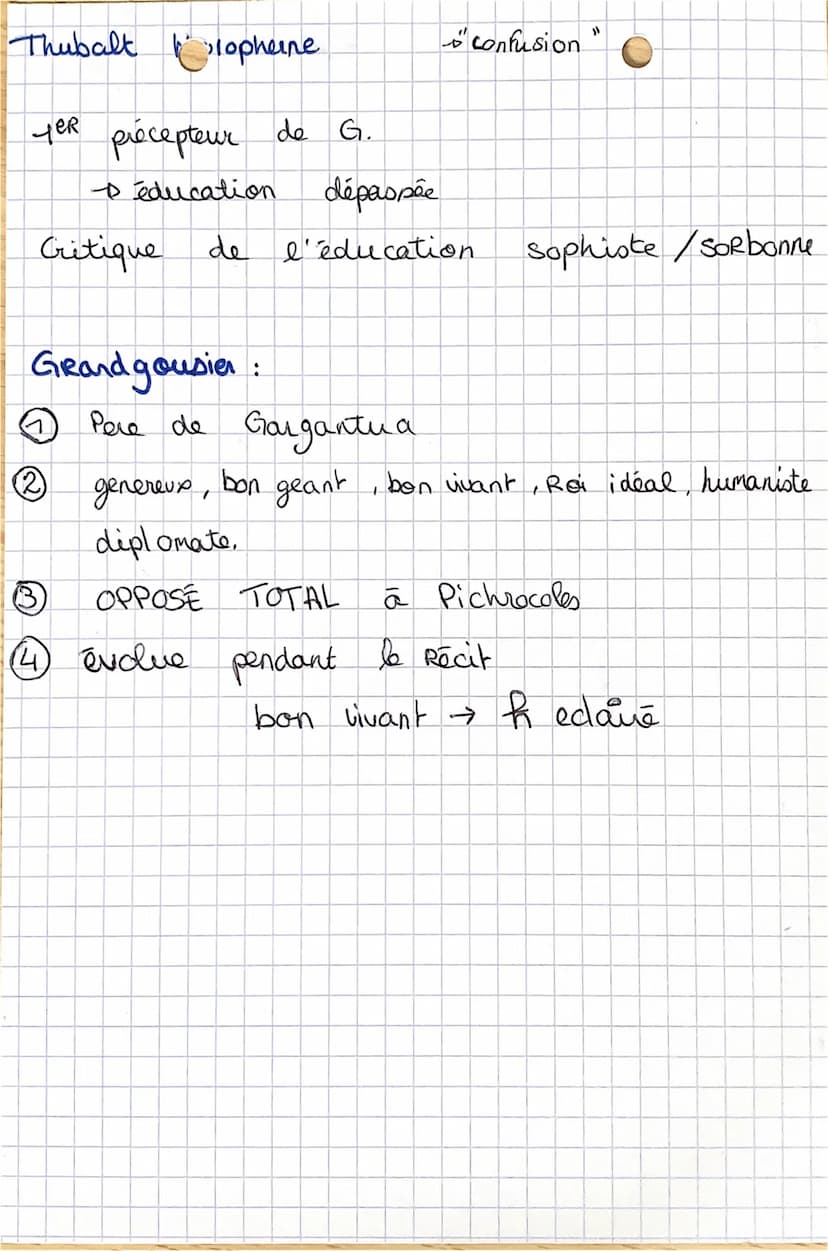 Thubalt → "confusion"
1ER précepteur de G.
→ éducation dépassée
Critique de l'éducation sophiste / SORBONNE
Grandgousier :
① Pere de Gargantua
② genereux, bon geant, bon vivant, Roi idéal, humaniste
diplomate,
③ OPPOSÉ TOTAL à Pichrocoles
④ évolue pendant le Récit
bon vivant → eclairé